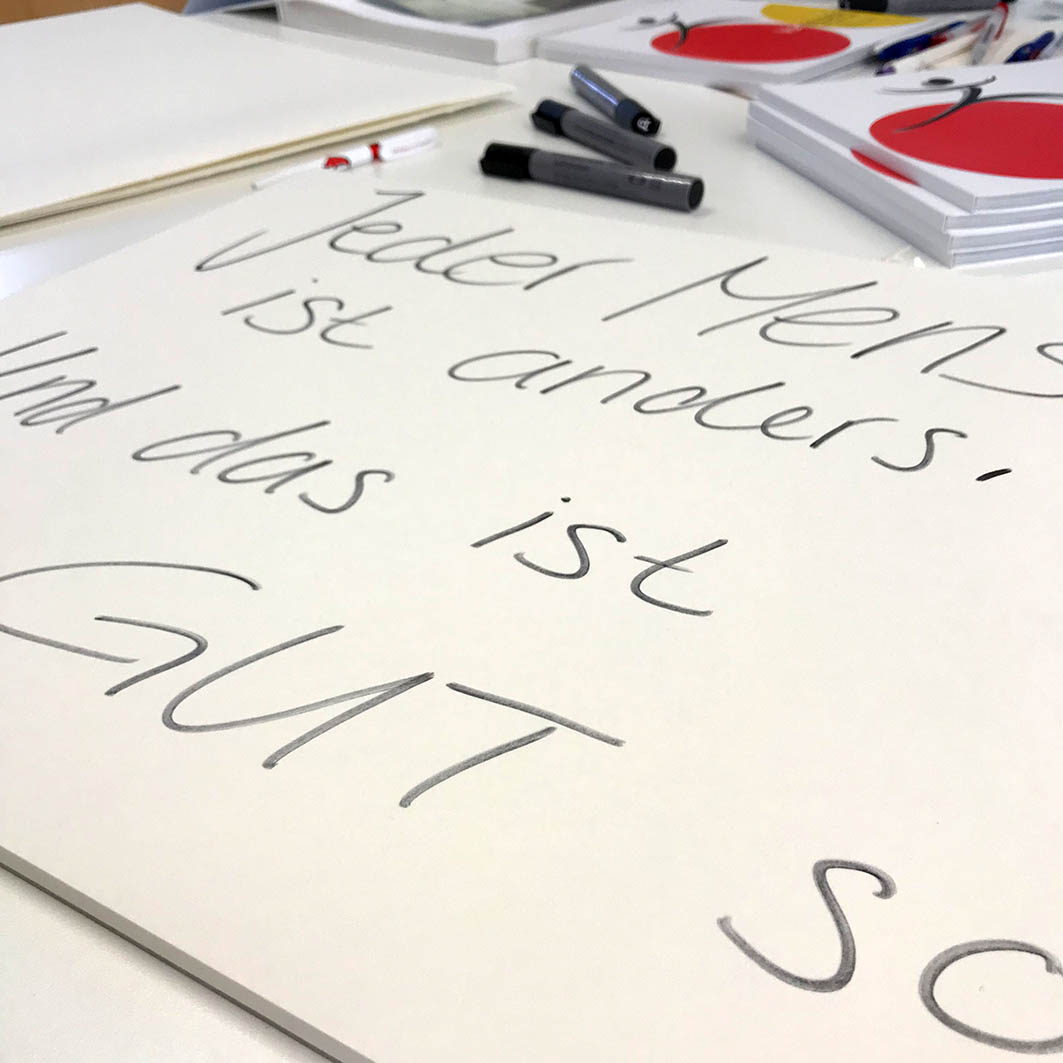 Jeder Mens
ist anders.
Und das ist
GUT
so